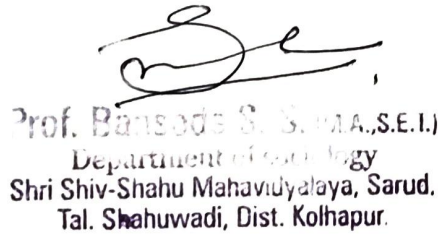 Prof. Bansode S. S. (M.A.,S.E.T.)
Department of sociology
Shri Shiv-Shahu Mahavidyalaya, Sarud.
Tal. Shahuwadi, Dist. Kolhapur.